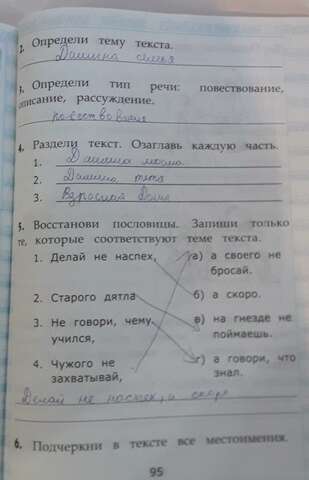 2. Определи тему текста.
Данина семья
3. Определи тип речи: повествование,
описание, рассуждение.
повествование
4. Раздели текст. Озаглавь каждую часть.
1. Данина мама
2. Данина тётя
3. Взрослая Даня
5. Восстанови пословицы. Запиши только
те, которые соответствуют теме текста.
1. Делай не наспех, а) а своего не
бросай.
2. Старого дятла б) а скоро.
3. Не говори, чему в) на гнезде не
учился, поймаешь.
4. Чужого не г) а говори, что
захватывай, знал.
Делай не наспех, а скоро
6. Подчеркни в тексте все местоимения.
95